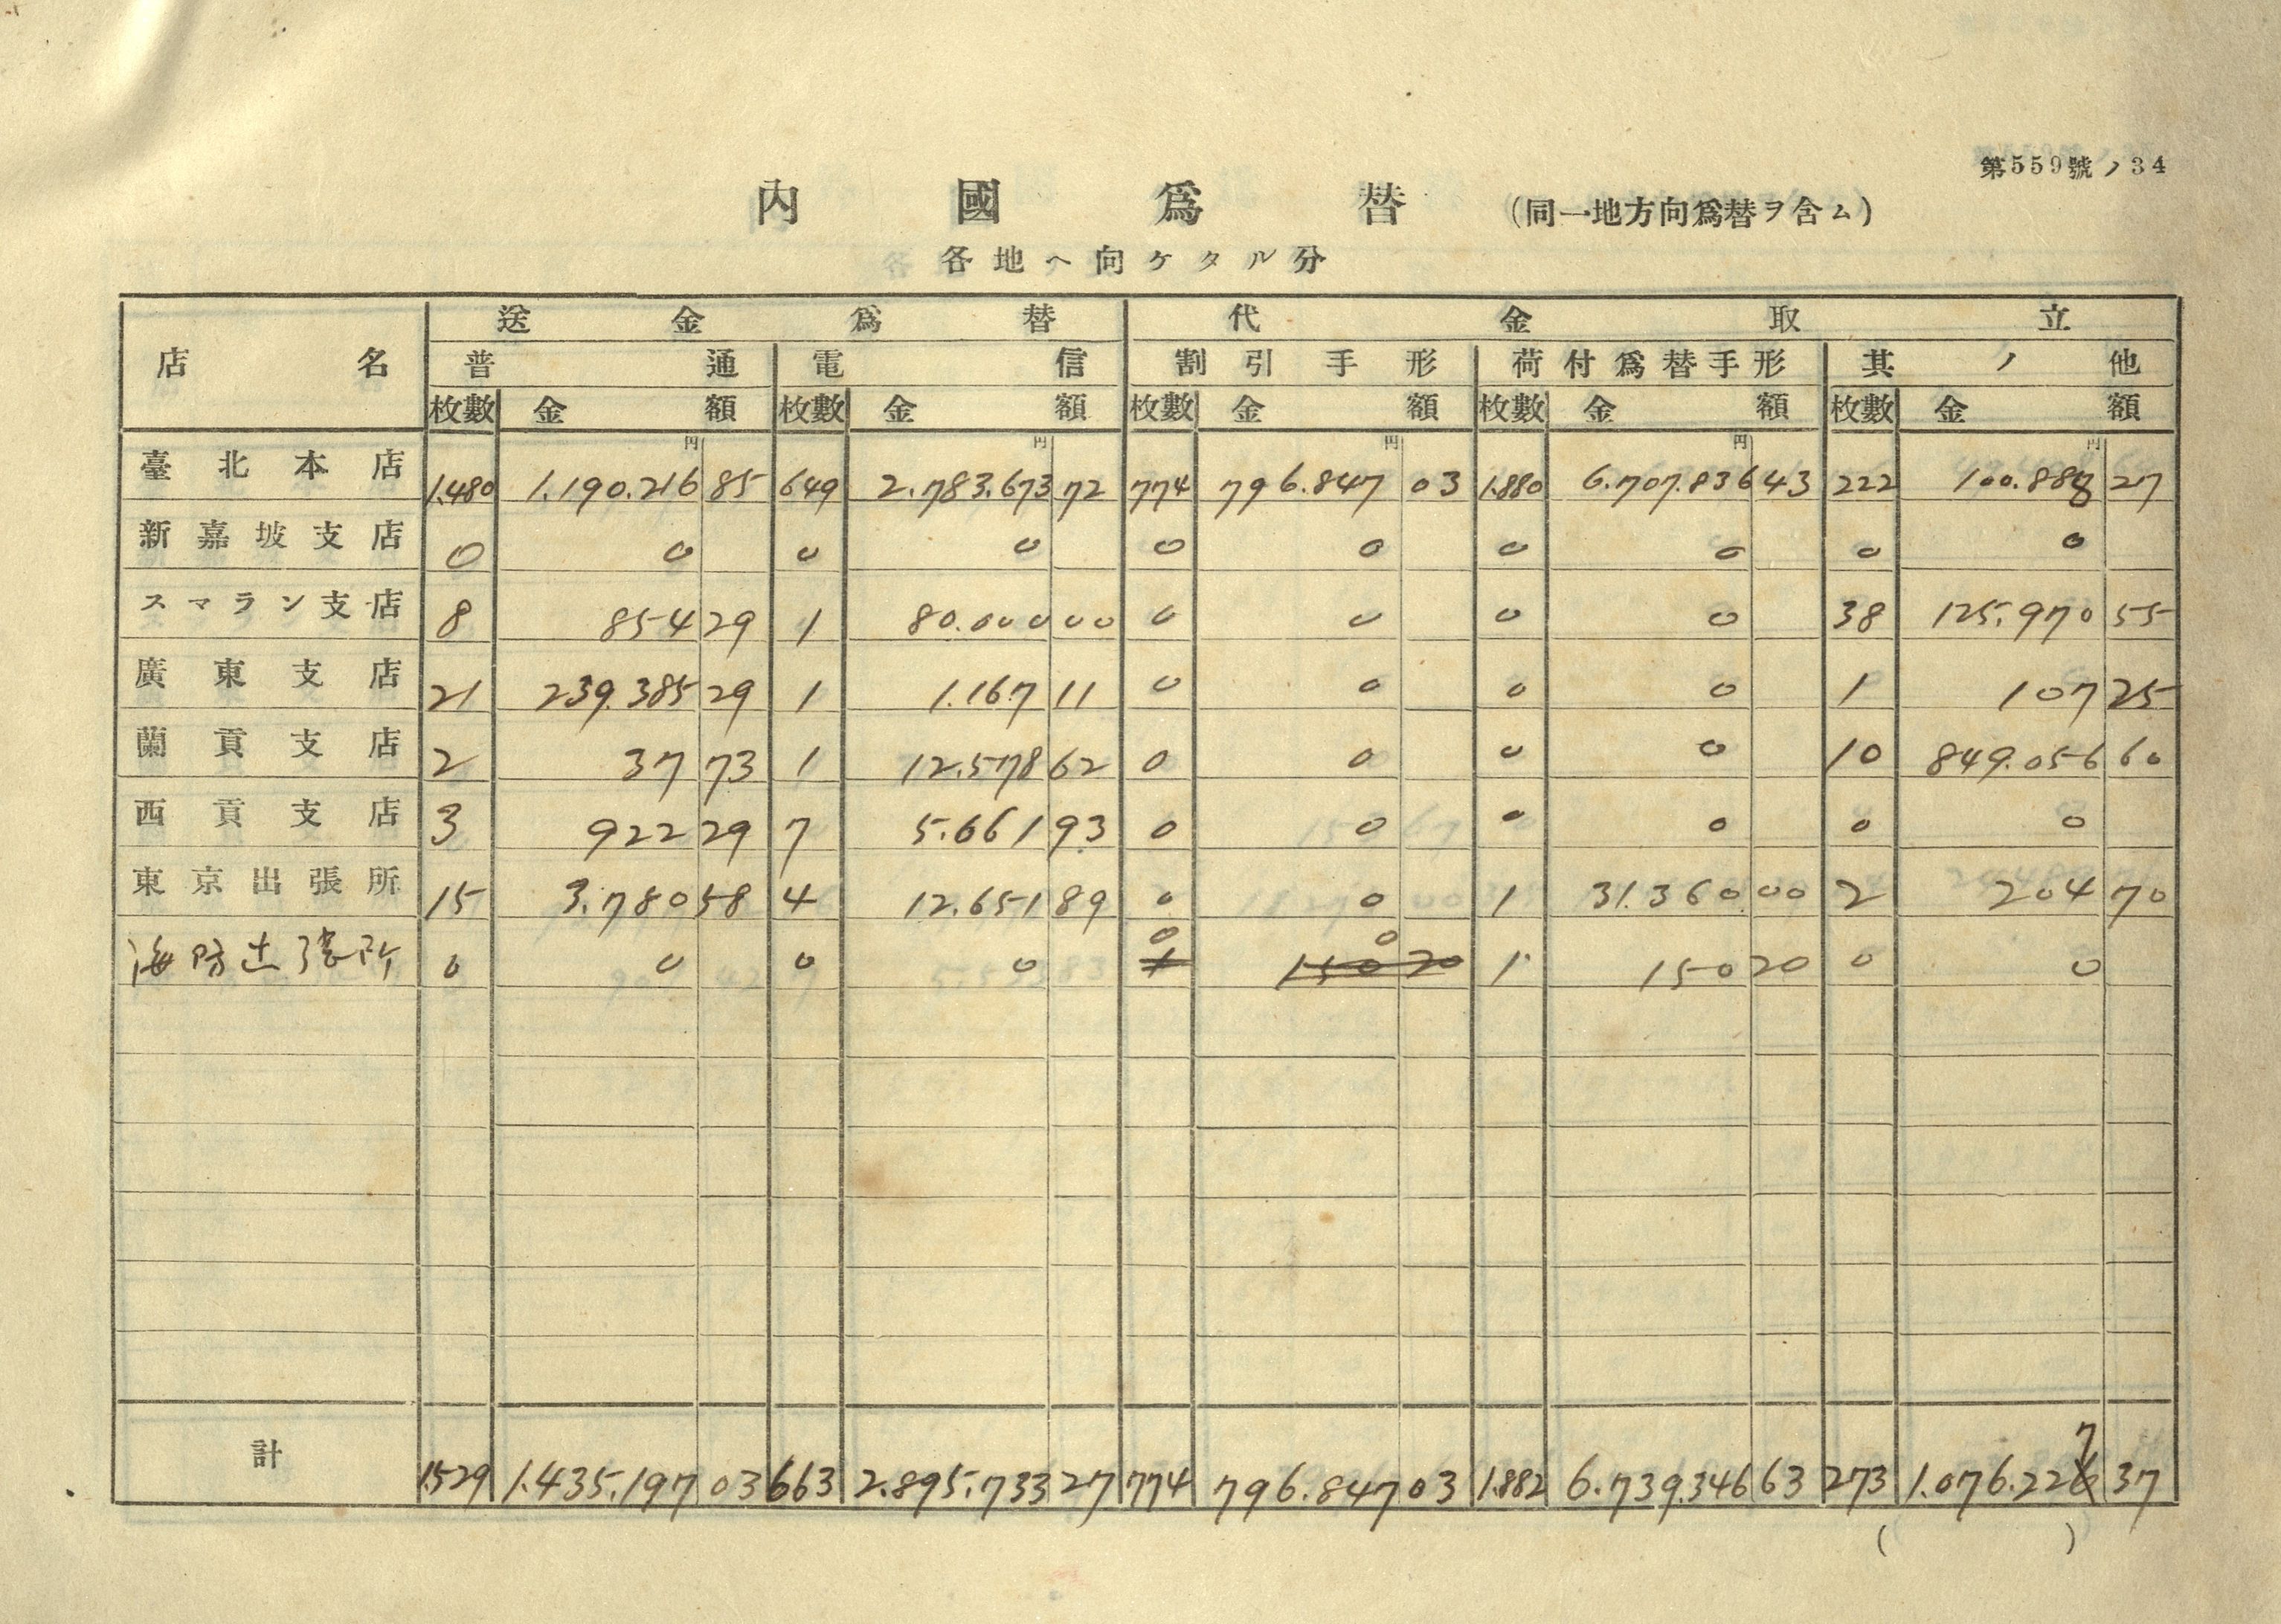 第559號ノ34
內國爲替 (同一地方向爲替ヲ含ム)
各地ヘ向ケタル分
店名 送金爲替 代金取立
普通 電信 割引手形 荷付爲替手形 其ノ他
枚數 金額 枚數 金額 枚數 金額 枚數 金額 枚數 金額
円 円 円 円 円
臺北本店 1.480 1.190.216 85 649 2.783.673 72 774 796.847 03 1.880 6.707.836 43 222 100.888 27
新嘉坡支店 0 0 0 0 0 0 0 0 0 0
スマラン支店 8 854 29 1 80.000 00 0 0 0 0 38 125.970 55
廣東支店 21 239.385 29 1 1.167 11 0 0 0 0 1 107 25
蘭貢支店 2 37 73 1 12.578 62 0 0 0 0 10 849.056 60
西貢支店 3 922 29 7 5.661 93 0 0 0 0 0 0
東京出張所 15 3.780 58 4 12.651 89 0 0 1 31.360.00 2 204 70
0 0
海防出張所 0 0 0 0 1 150 20 1 150 20 0 0
7
計 1529 1.435.197 03 663 2.895.733 27 774 796.847 03 1.882 6.739.346 63 273 1.076.226 37
( )